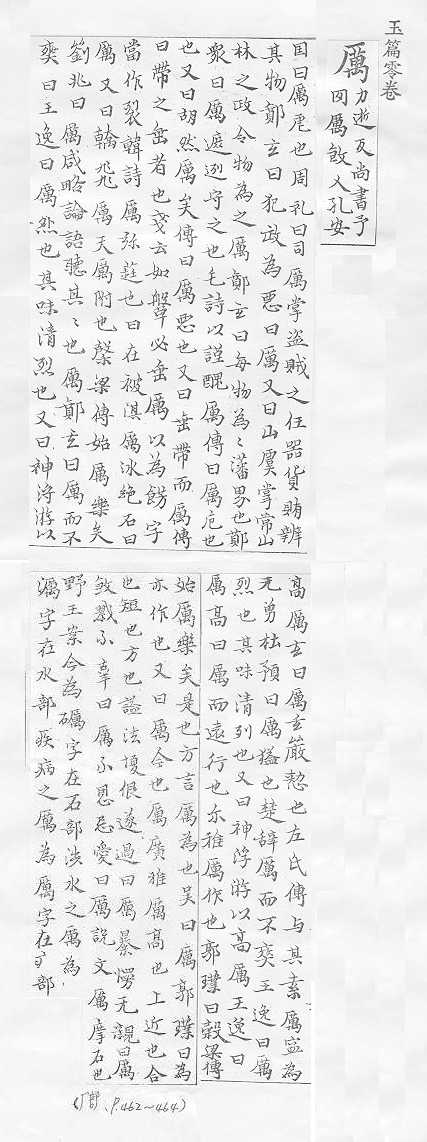 玉篇零卷
厲 力逝反尚書予
囚厲敘人孔安
国曰厲虐也周礼曰司厲掌盗賊之任器貨賄辨
其物鄭玄曰犯政為悪曰厲又曰山虞掌常山
林之政令物為之厲鄭玄曰每物為々藩界也鄭
眾曰厲遮迾守之也毛詩以謹醜厲傳曰厲危也
也又曰胡然厲矣傳曰厲悪也又曰垂帶而厲傳
曰帶之垂者也戔云如鞶必垂厲以為餝字
當作裂韓詩厲弥莚也曰在被淇厲冰絶石曰
厲又曰翰飛厲天厲附也榖梁傳始厲樂矣
劉兆曰厲咸略論語聽其々也厲鄭玄曰厲而不
爽曰王逸曰厲烈也其味清烈也又曰神浮游以
高厲玄曰厲玄嚴愸也左氏傳与其素厲寍為
无勇杜預曰厲猛也楚辞厲而不爽王逸曰厲
烈也其味清列也又曰神浮游以高厲王逸曰
厲高曰厲而遠行也尓雅厲作也郭璞曰榖梁傳
始厲樂矣是也方言厲為也吴曰厲郭璞曰為
亦作也又曰厲今也厲廣雅厲高也上近也合
也短也方也謚法愎佷遂過曰厲暴慢无親曰厲
煞戮不辜曰厲不思忘愛曰厲説文厲摩石也
野王案今為礪字在石部渉水之厲為
濿字在水部疾病之厲為厲字在疒部
(厂部、P.462~464)